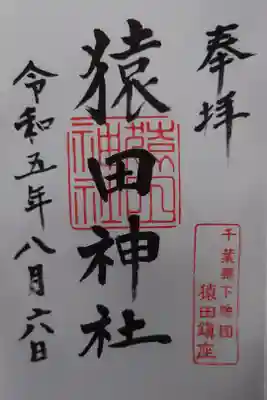 奉拝
猿田神社
令和五年八月六日
猿田神社
千葉縣下総国
猿田鎮座